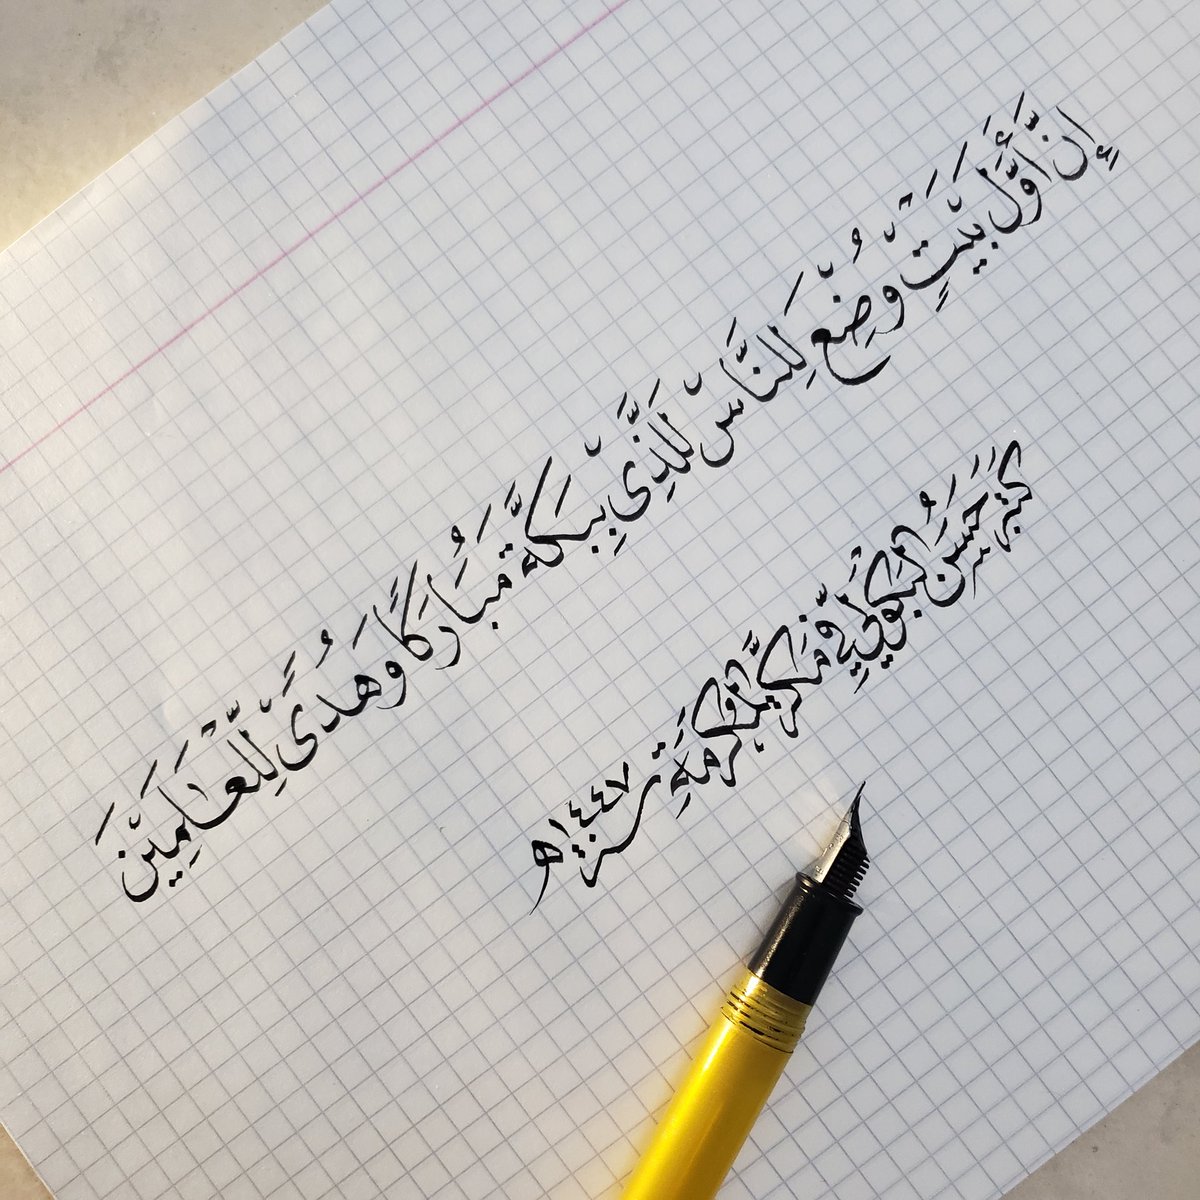 إِنَّ أَوَّلَ بَيْتٍ وُضِعَ لِلنَّاسِ لَلَّذِي بِبَكَّةَ مُبَارَكًا وَهُدًى لِّلْعَالَمِينَ
كتبه حسن البكولي في مكة المكرمة سنة ١٤٤٧هـ